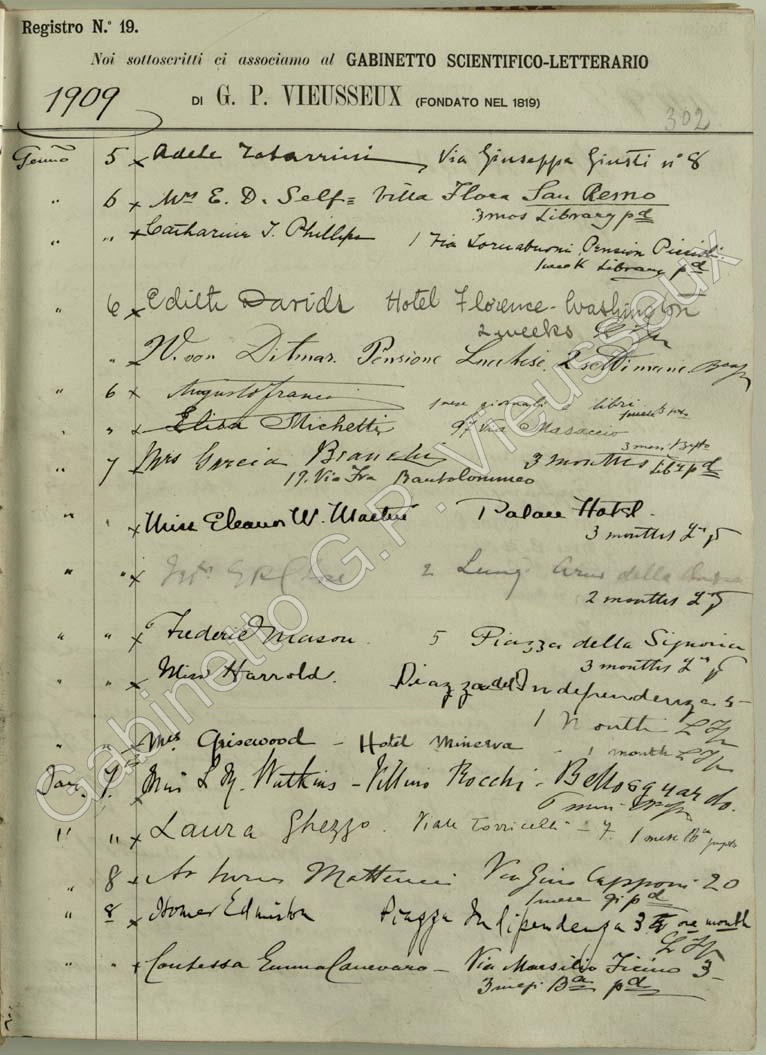 Registro N.º 19.
Noi sottoscritti ci associamo al GABINETTO SCIENTIFICO-LETTERARIO
1909
DI G. P. VIEUSSEUX (FONDATO NEL 1819)
302
5 x Adele Tabarrini, Via Giuseppe Giusti nº 8
" 6 x Mrs E. D. Self = Villa Flora San Remo
3 mos Library pd
" " x Catharine T. Phillips 1 Via Tornabuoni Pension Piccioli
Library pd
" 6 x Edith Davids Hotel Florence-Washington
2 weeks
" W. von Ditmar. Pensione Lucchesi 2 settimane
" 6 x Augusto Franci mese giornali e libri
" " x Elisa Michetti 97 Via Masaccio
3 mesi
" 7 x Mrs Garcia 3 months
19. Via Fra Bartolommeo
" " x Miss Eleanor W. Palace Hotel.
3 months
" " x 2 Lung' Arno della
2 months
" " x Frederic Mason. 5 Piazza della Signoria
3 months
" " x Miss Harrold. Piazza dell'Independenza 5
1 Month
" " x Mrs Grisewood - Hotel Minerva - 1 month
7. x Miss L. M. Watkins - Villino Rocchi - Bellosguardo.
" " x Laura Ghezzo. Viale Torricelli - 7. 1 mese
" 8 x Arturo Matteucci Via Gino Capponi 20
1 mese pd
" 8 x Homer Edmiston Piazza Indipendenza 3 one month
" " x Contessa Emma Canevaro - Via Marsilio Ficino 3
3 mesi pd
Gabinetto G.P. Vieusseux